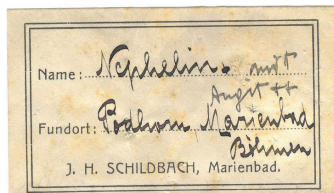 Name: Nephelin. mit
Augit ++
Fundort: Podhorn, Marienbad
Böhmen
J. H. SCHILDBACH, Marienbad.